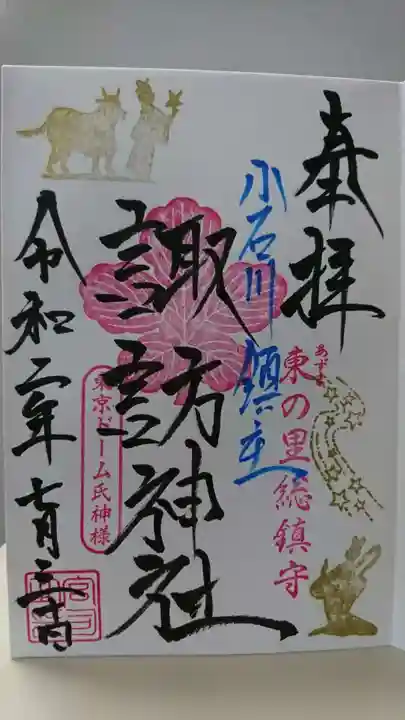 奉拝
あずま
東の里総鎮守
小石川鎮守
諏訪神社
東京ドーム氏神様
令和二年七月三十日